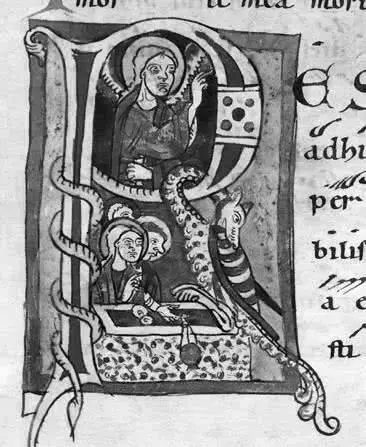 mor te mea mori
R E S
adhu
per
bilis
a e
sti